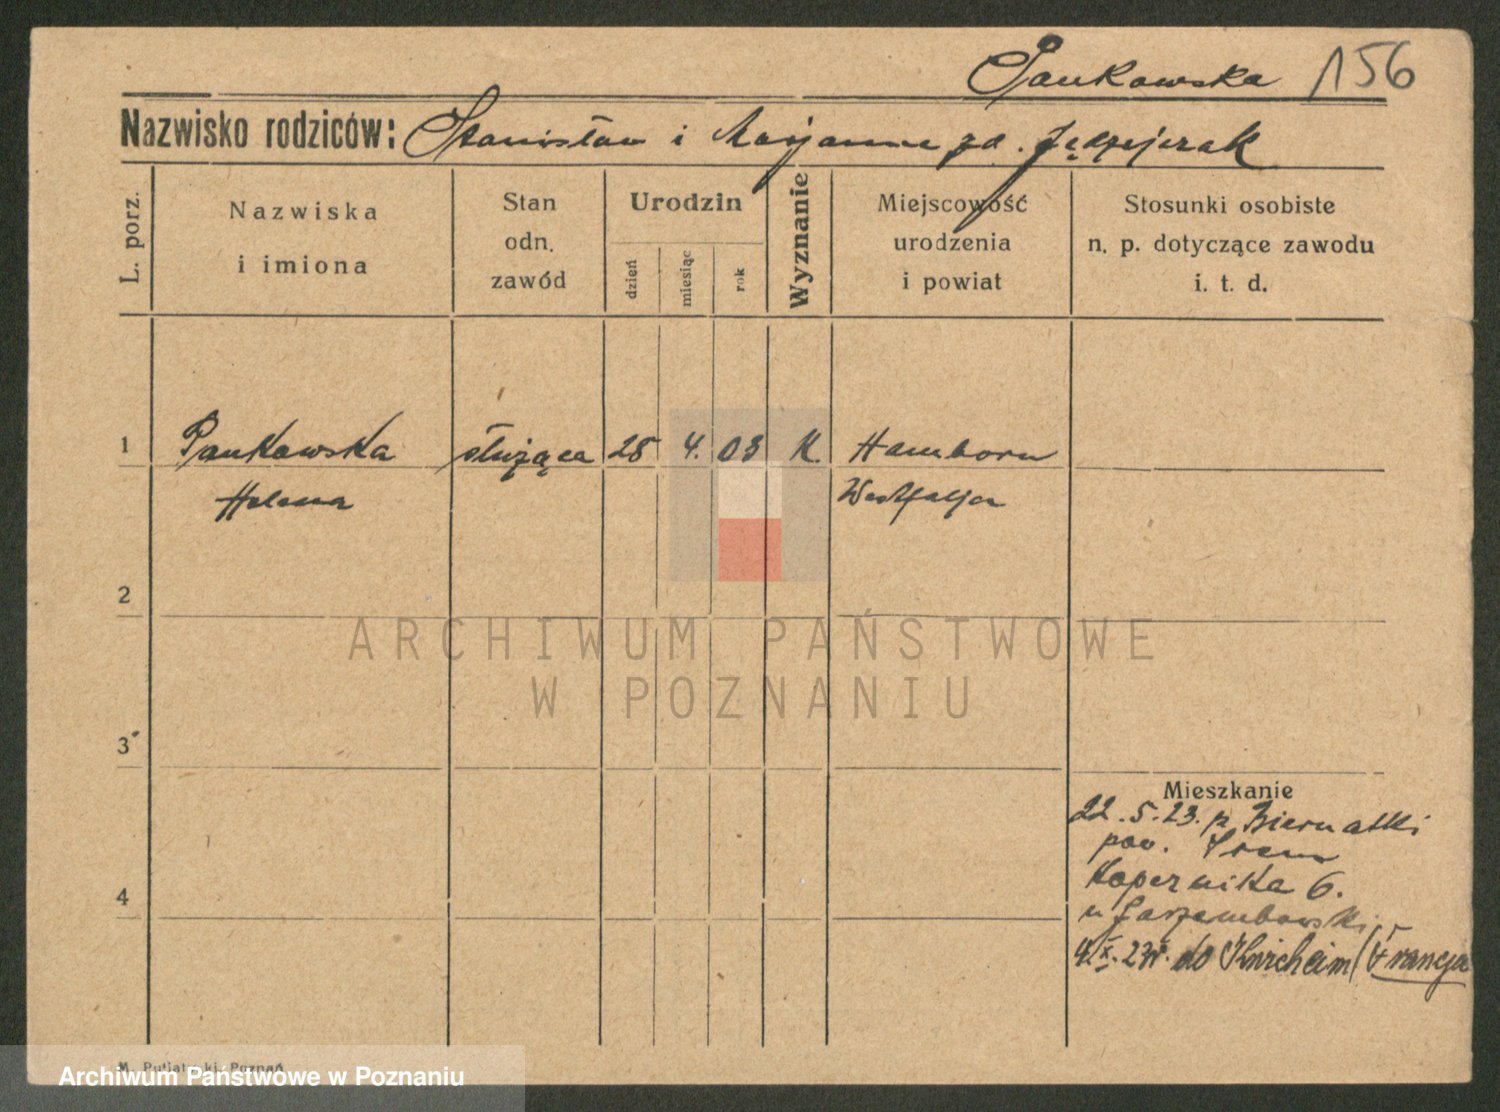 Pankowska 156
Nazwisko rodziców: Stanisław i Marjanna zd. Jędrzejczak
L. porz.
Nazwiska
i imiona
Stan
odn.
zawód
Urodzin
dzień
miesiąc
rok
Wyznanie
Miejscowość
urodzenia
i powiat
Stosunki osobiste
n. p. dotyczące zawodu
i. t. d.
1 Pankowska służąca 28 4. 03 K. Hamborn
Helena Westfalja
2
ARCHIWUM PAŃSTWOWE
W POZNANIU
3
Mieszkanie
22.5.23. z Biernatki
pow. Śrem
4 Kopernika 6.
u Jarzembowski
4.X.23r. do (Francja
M. Putiatycki, Poznań
Archiwum Państwowe w Poznaniu